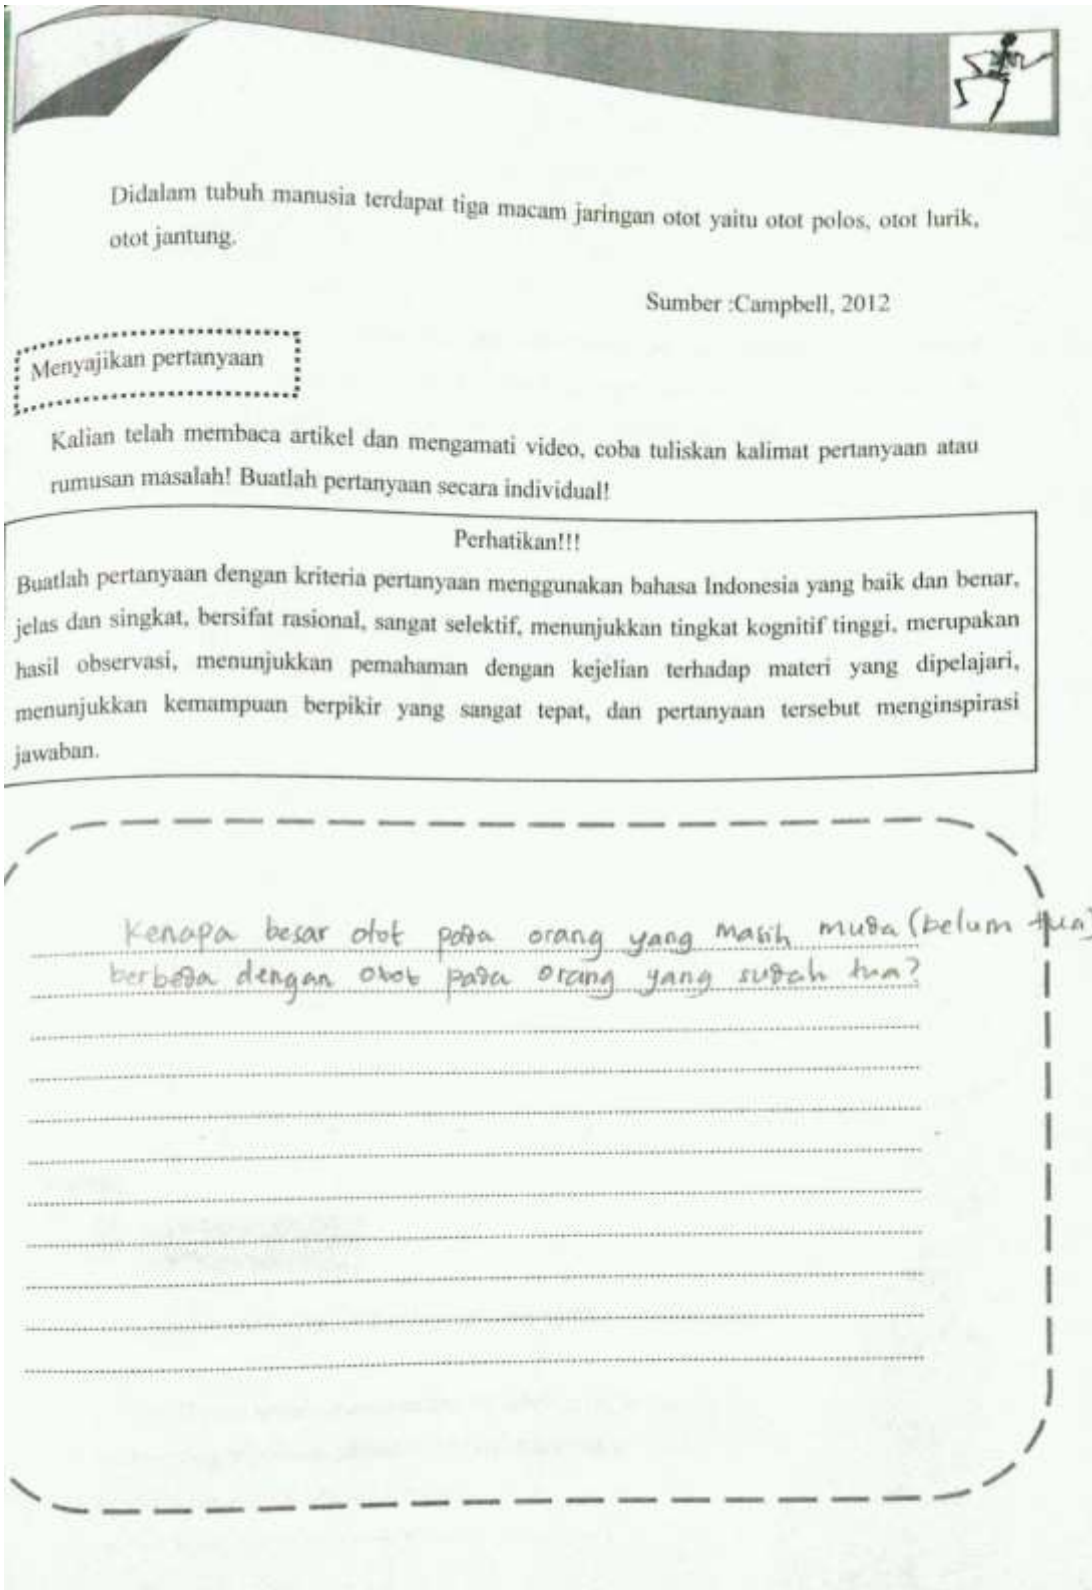 Didalam tubuh manusia terdapat tiga macam jaringan otot yaitu otot polos, otot lurik,
otot jantung.
Sumber :Campbell, 2012
Menyajikan pertanyaan
Kalian telah membaca artikel dan mengamati video, coba tuliskan kalimat pertanyaan atau
rumusan masalah! Buatlah pertanyaan secara individual!
Perhatikan!!!
Buatlah pertanyaan dengan kriteria pertanyaan menggunakan bahasa Indonesia yang baik dan benar,
jelas dan singkat, bersifat rasional, sangat selektif, menunjukkan tingkat kognitif tinggi, merupakan
hasil observasi, menunjukkan pemahaman dengan kejelian terhadap materi yang dipelajari,
menunjukkan kemampuan berpikir yang sangat tepat, dan pertanyaan tersebut menginspirasi
jawaban.
Kenapa besar otot pada orang yang masih muda (belum tua)
berbeda dengan otot pada orang yang sudah tua?